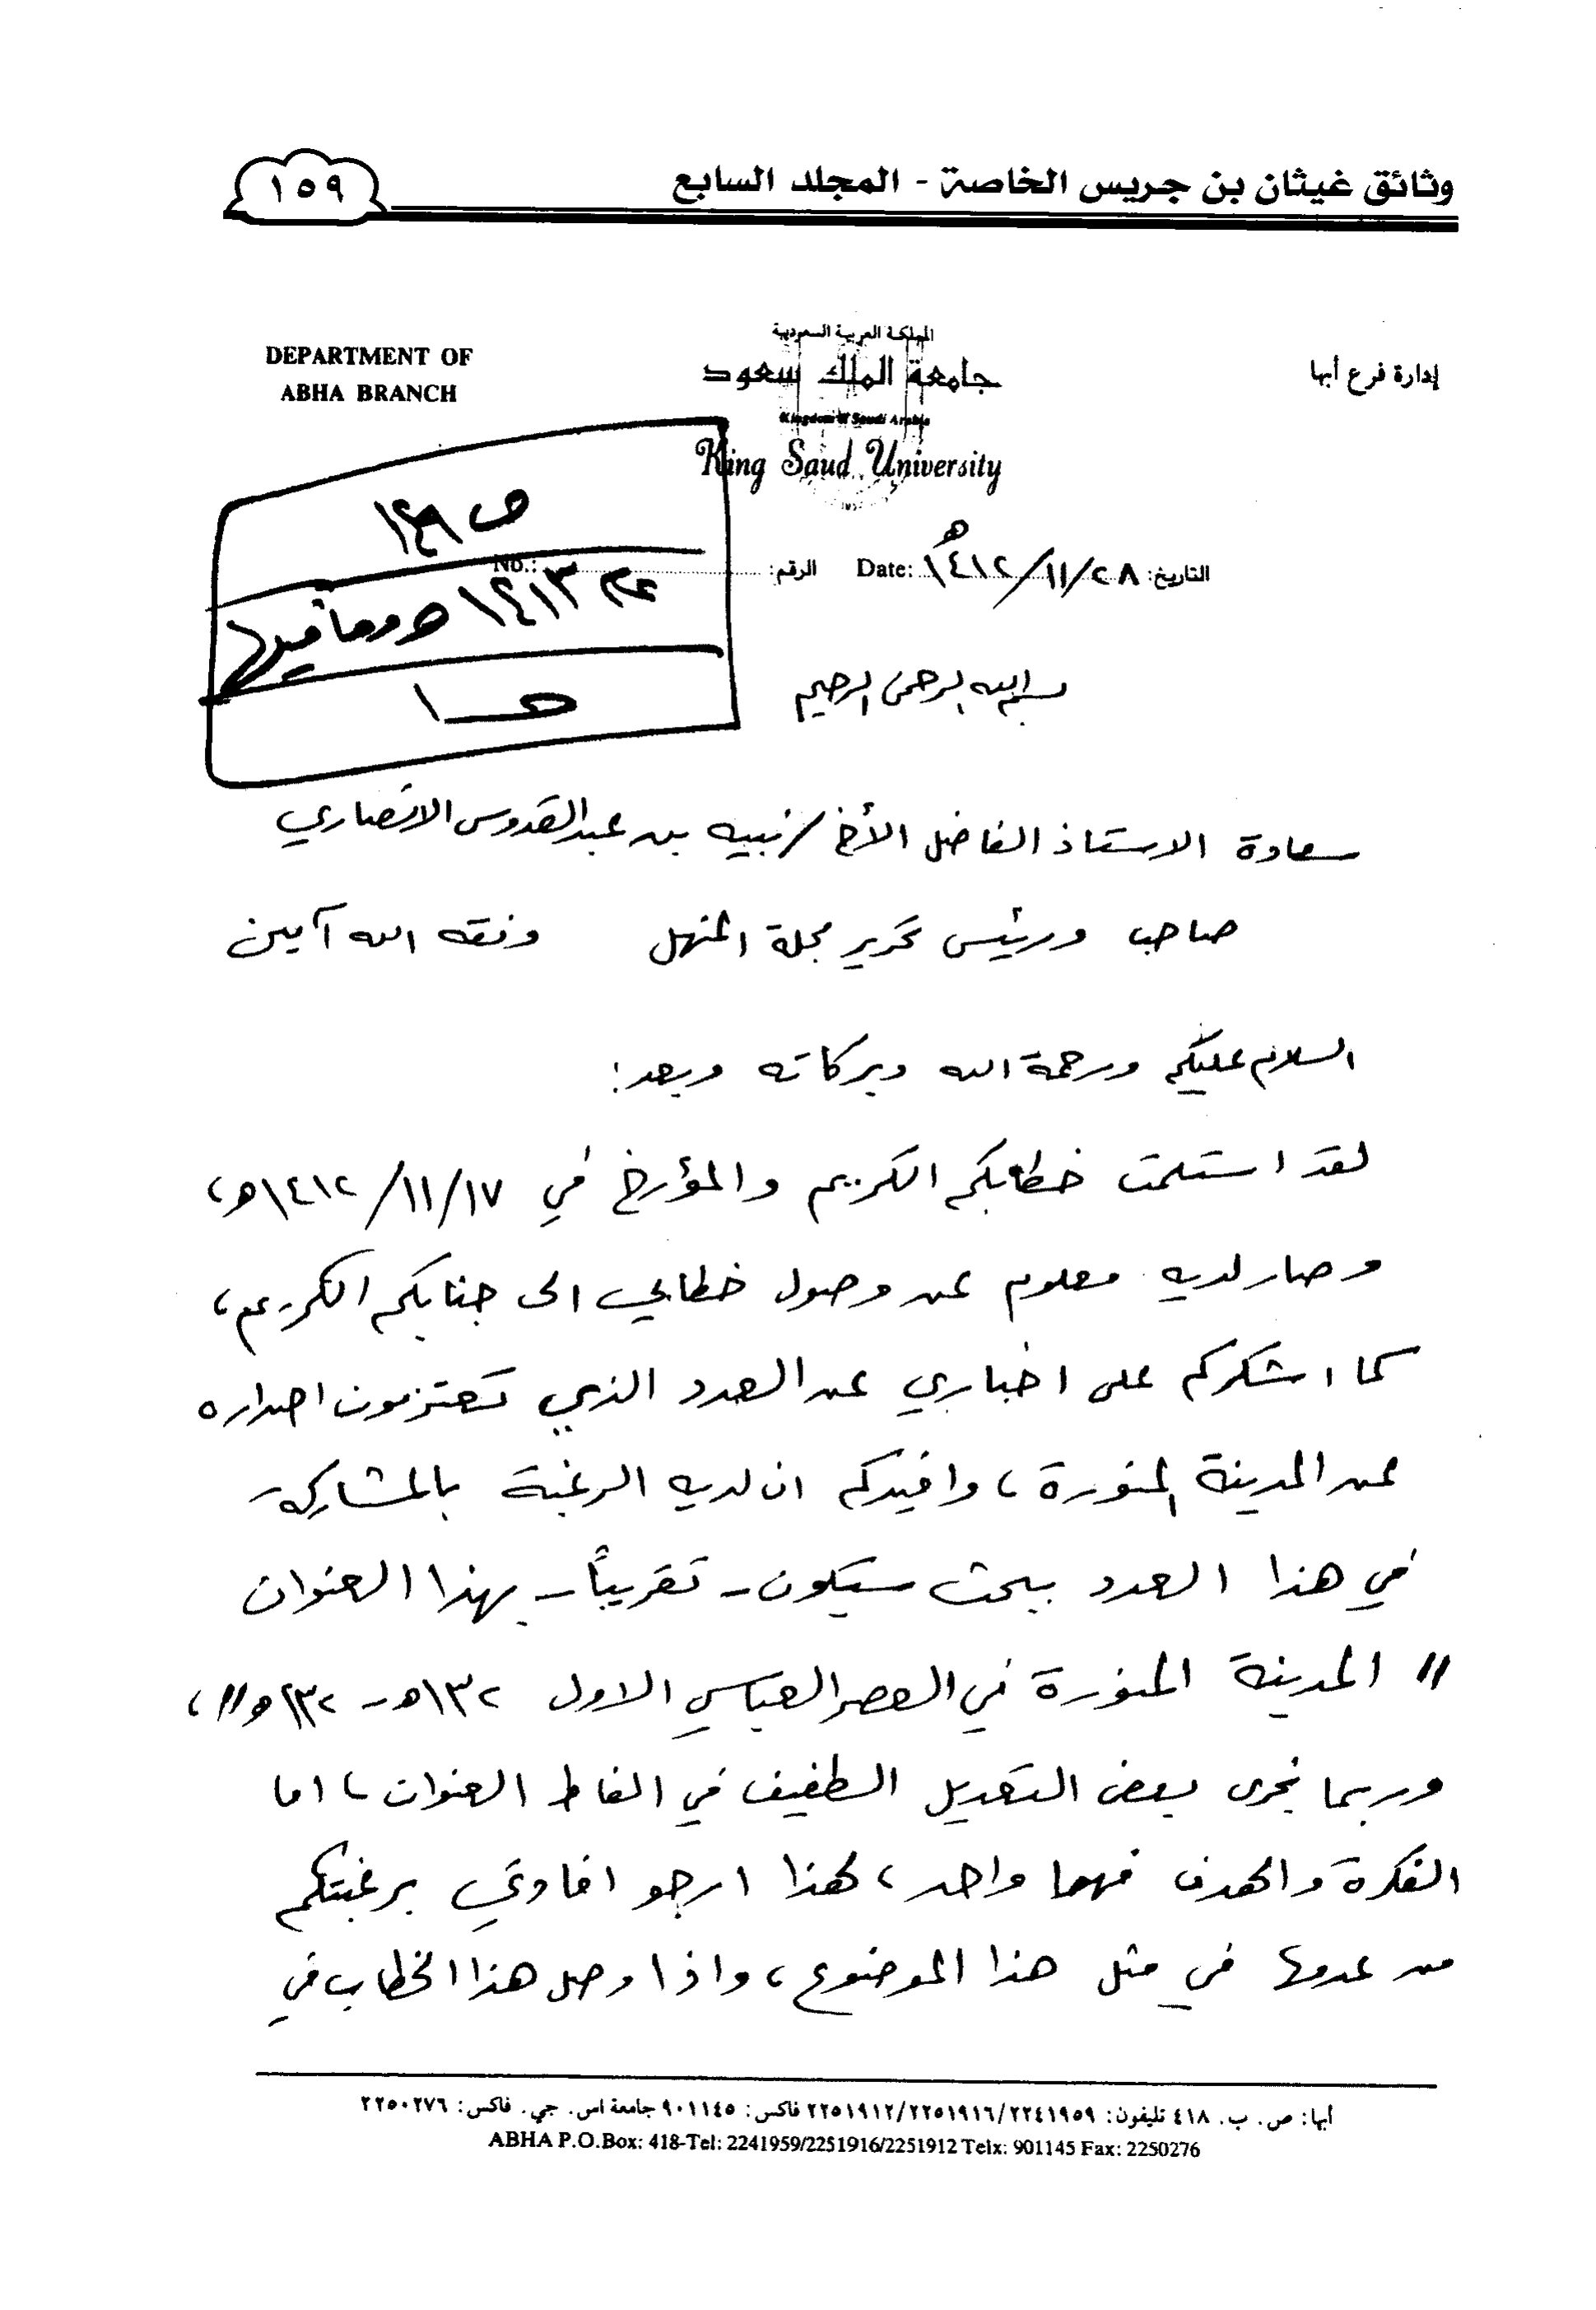 وثائق غيثان بن جريس الخاصة - المجلد السابع
١٥٩
إدارة فرع أبها
المملكة العربية السعودية
جامعة الملك سعود
Kingdom of Saudi Arabia
King Saud University
DEPARTMENT OF
ABHA BRANCH
التاريخ: ١٤١٢/١١/٢٨ هـ Date: الرقم: No.:
ص ١٤٩
١٤١٣ هـ وما فيها
بسم الله الرحمن الرحيم
سعادة الاستاذ الفاضل الأخ / نبيه بن عبدالقدوس الانصاري
صاحب ورئيس تحرير مجلة المنهل وفقه الله آمين
السلام عليكم ورحمة الله وبركاته وبعد :
لقد استلمت خطابكم الكريم والمؤرخ في ١٤١٢/١١/١٧هـ،
وصار لديه معلوم عن وصول خطابي الى جنابكم الكريم،
كما اشكركم على اخباري عن العدد الذي تعتزمون اصداره
عن المدينة المنورة، وافيدكم ان لديه الرغبة بالمشاركة
في هذا العدد ببحث سيكون - تقريباً - بهذا العنوان
" المدينة المنورة في العصر العباسي الاول ١٣٢هـ - ٢٣٢هـ "،
وربما نجرى بعض التعديل الطفيف في الفاظ العنوان، اما
الفكرة والهدف فهما واحد، لهذا ارجو افادتي برغبتكم
من عدمها في مثل هذا الموضوع، واذا وصل هذا الخطاب في
أبها: ص. ب. ٤١٨ تليفون: ٢٢٤١٩٥٩/٢٢٥١٩١٦/٢٢٥١٩١٢ فاكس: ٩٠١١٤٥ جامعة اس. جي. فاكس: ٢٢٥٠٢٧٦
ABHA P.O.Box: 418-Tel: 2241959/2251916/2251912 Telx: 901145 Fax: 2250276